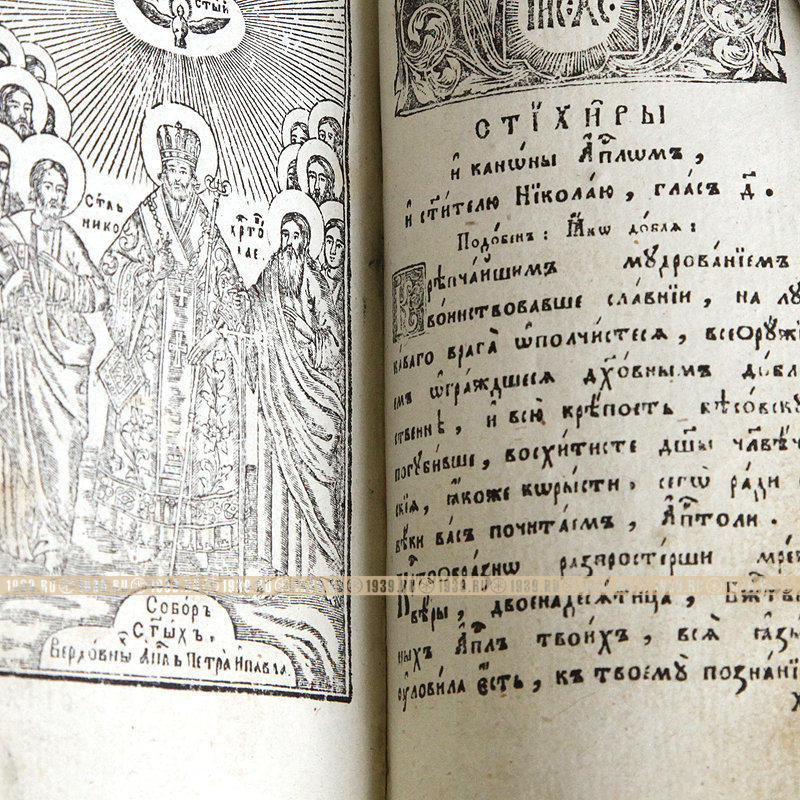 стый
Стль
нико
хрто
лае.
Соборъ
Стыхъ,
Верховны Апль Петра и павла.
СТІХИРЫ
и канѡны Апⷭ҇лѡмъ,
и ст҃ителю Нїкола́ю, гла́съ д҃.
Подо́бенъ: Ꙗ҆́кѡ до́блѧ:
рѣпча́йшимъ мꙋдрова́нїемъ
во́инствовавше сла́внїи, на лꙋ
ка́ваго врага̀ ѡ҆полчи́стесѧ, всеѻрꙋ́жї
емъ ѡ҆гра́ждшесѧ дх҃о́внымъ до́бл
ственнѣ, и҆ всю̀ крѣ́пость бѣсо́вскꙋ
погꙋби́вше, восхи́тисте дш҃ы члв҃ѣч
скїѧ, ꙗ҆́коже кѡры́сти, сегѡ̀ ра́ди
вѣ́ки ва́съ почита́емъ, Ап҇толи.
Крⷭ҇тоѡбра́знѡ распросте́рши мре́
вѣ́ры, двоенадесѧ́тица, Бж҃тве
ныхъ Ап҇лъ твои́хъ, всѧ̀ ꙗ҆зы
ᲂу҆лови́ла є҆́сть, къ твоемꙋ̀ позна́нїю
1939.RU 1939.RU 1939.RU 1939.RU 1939.RU 1939.RU 1939.RU 1939.RU